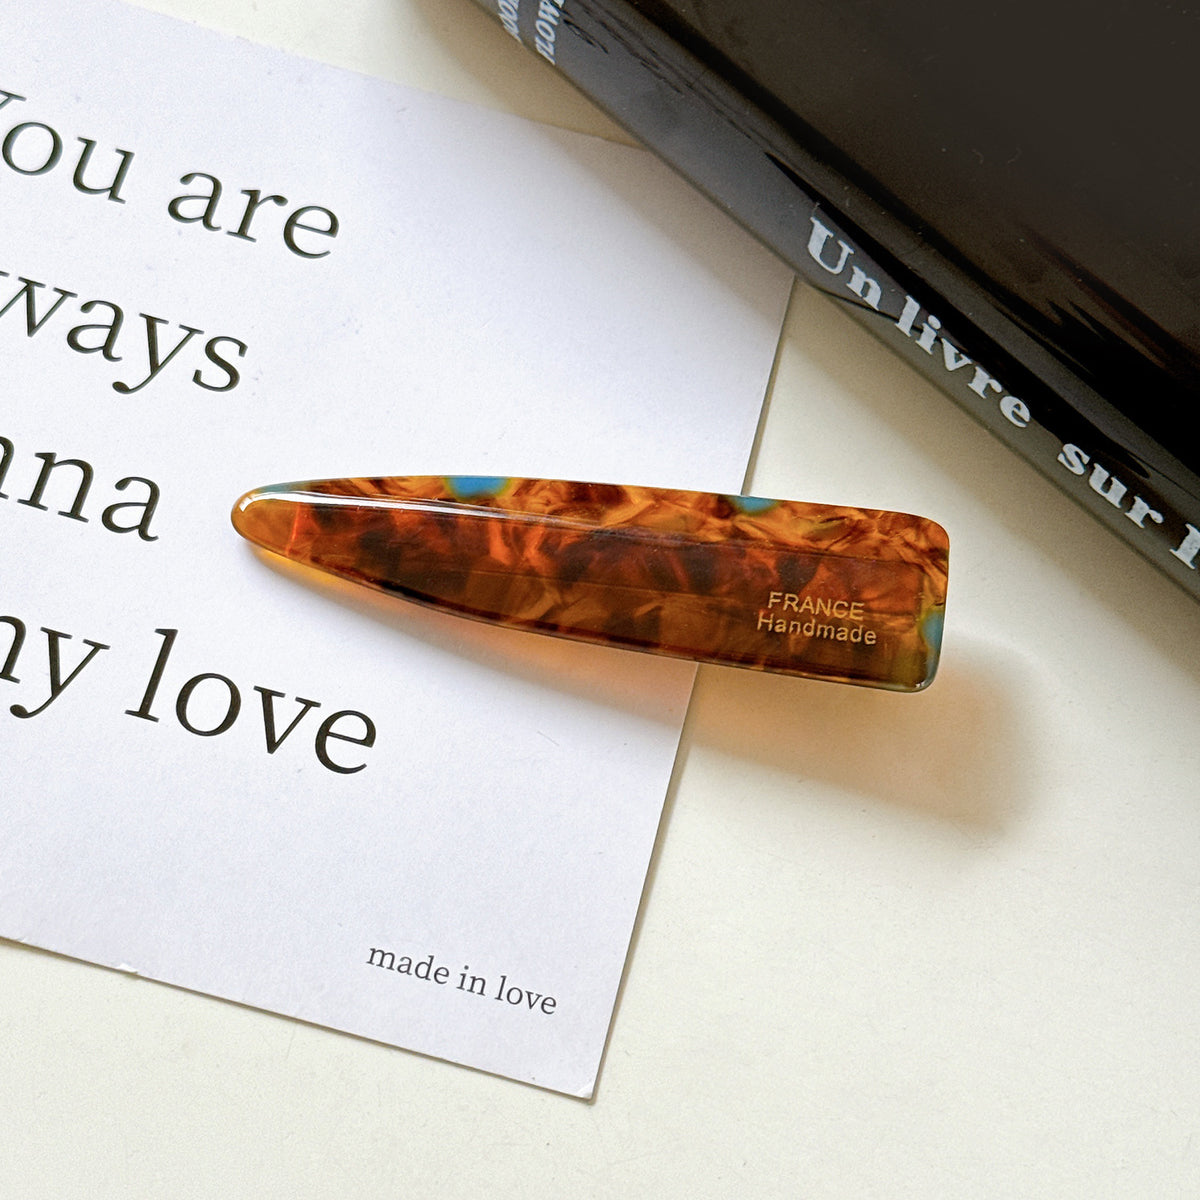 You are
ways
nna
my love
made in love
FRANCE
Handmade
Un livre sur